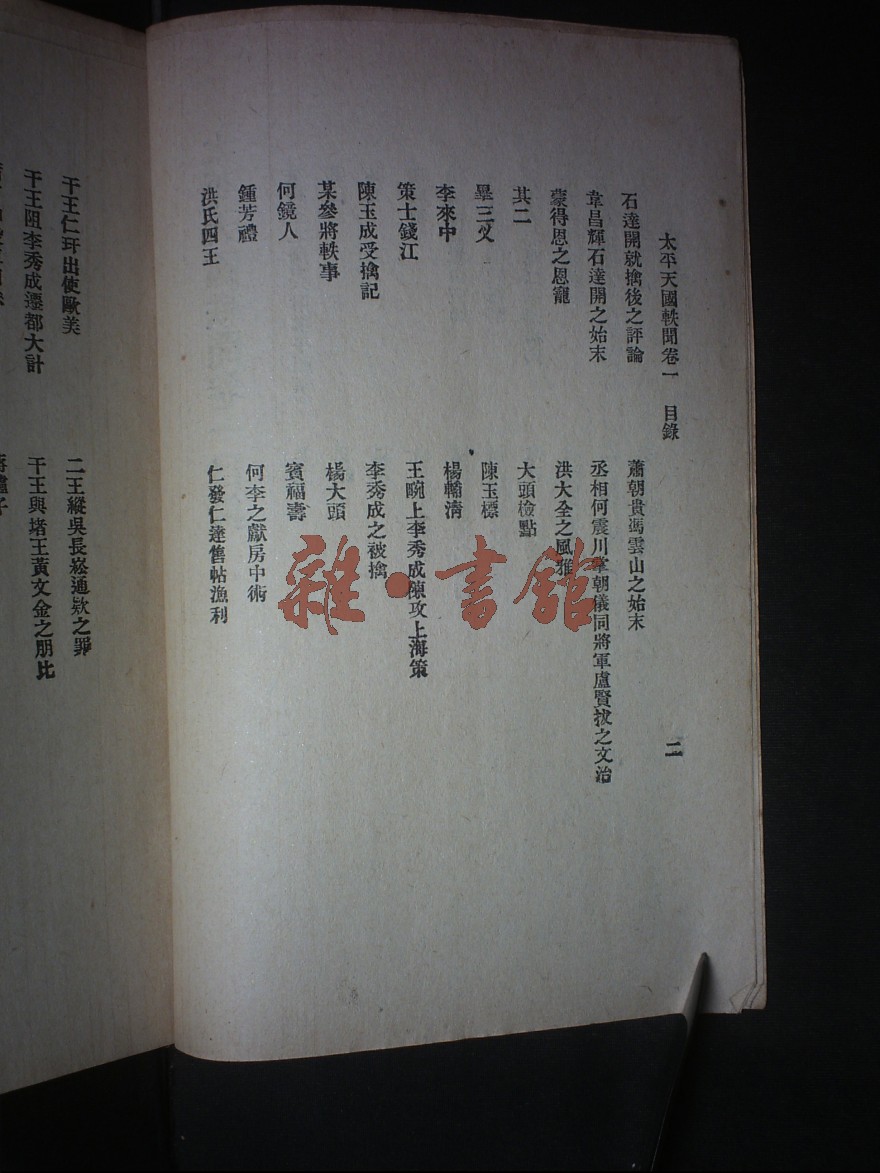 太平天國軼聞卷一 目錄
二
石達開就擒後之評論
蕭朝貴馮雲山之始末
韋昌輝石達開之始末
丞相何震川韋朝儀同將軍盧賢拔之文治
蒙得恩之恩寵
洪大全之風雅
其二
大頭檢點
畢三乂
陳玉標
李來中
楊輔清
策士錢江
王畹上李秀成陳攻上海策
陳玉成受擒記
李秀成之被擒
某參將軼事
楊大頭
何鏡人
賓福壽
鍾芳禮
何李之獻房中術
洪氏四王
仁發仁達售帖漁利
干王仁玕出使歐美
二王縱吳長崧通欵之罪
干王阻李秀成遷都大計
干王與堵王黃文金之朋比
雜·書館